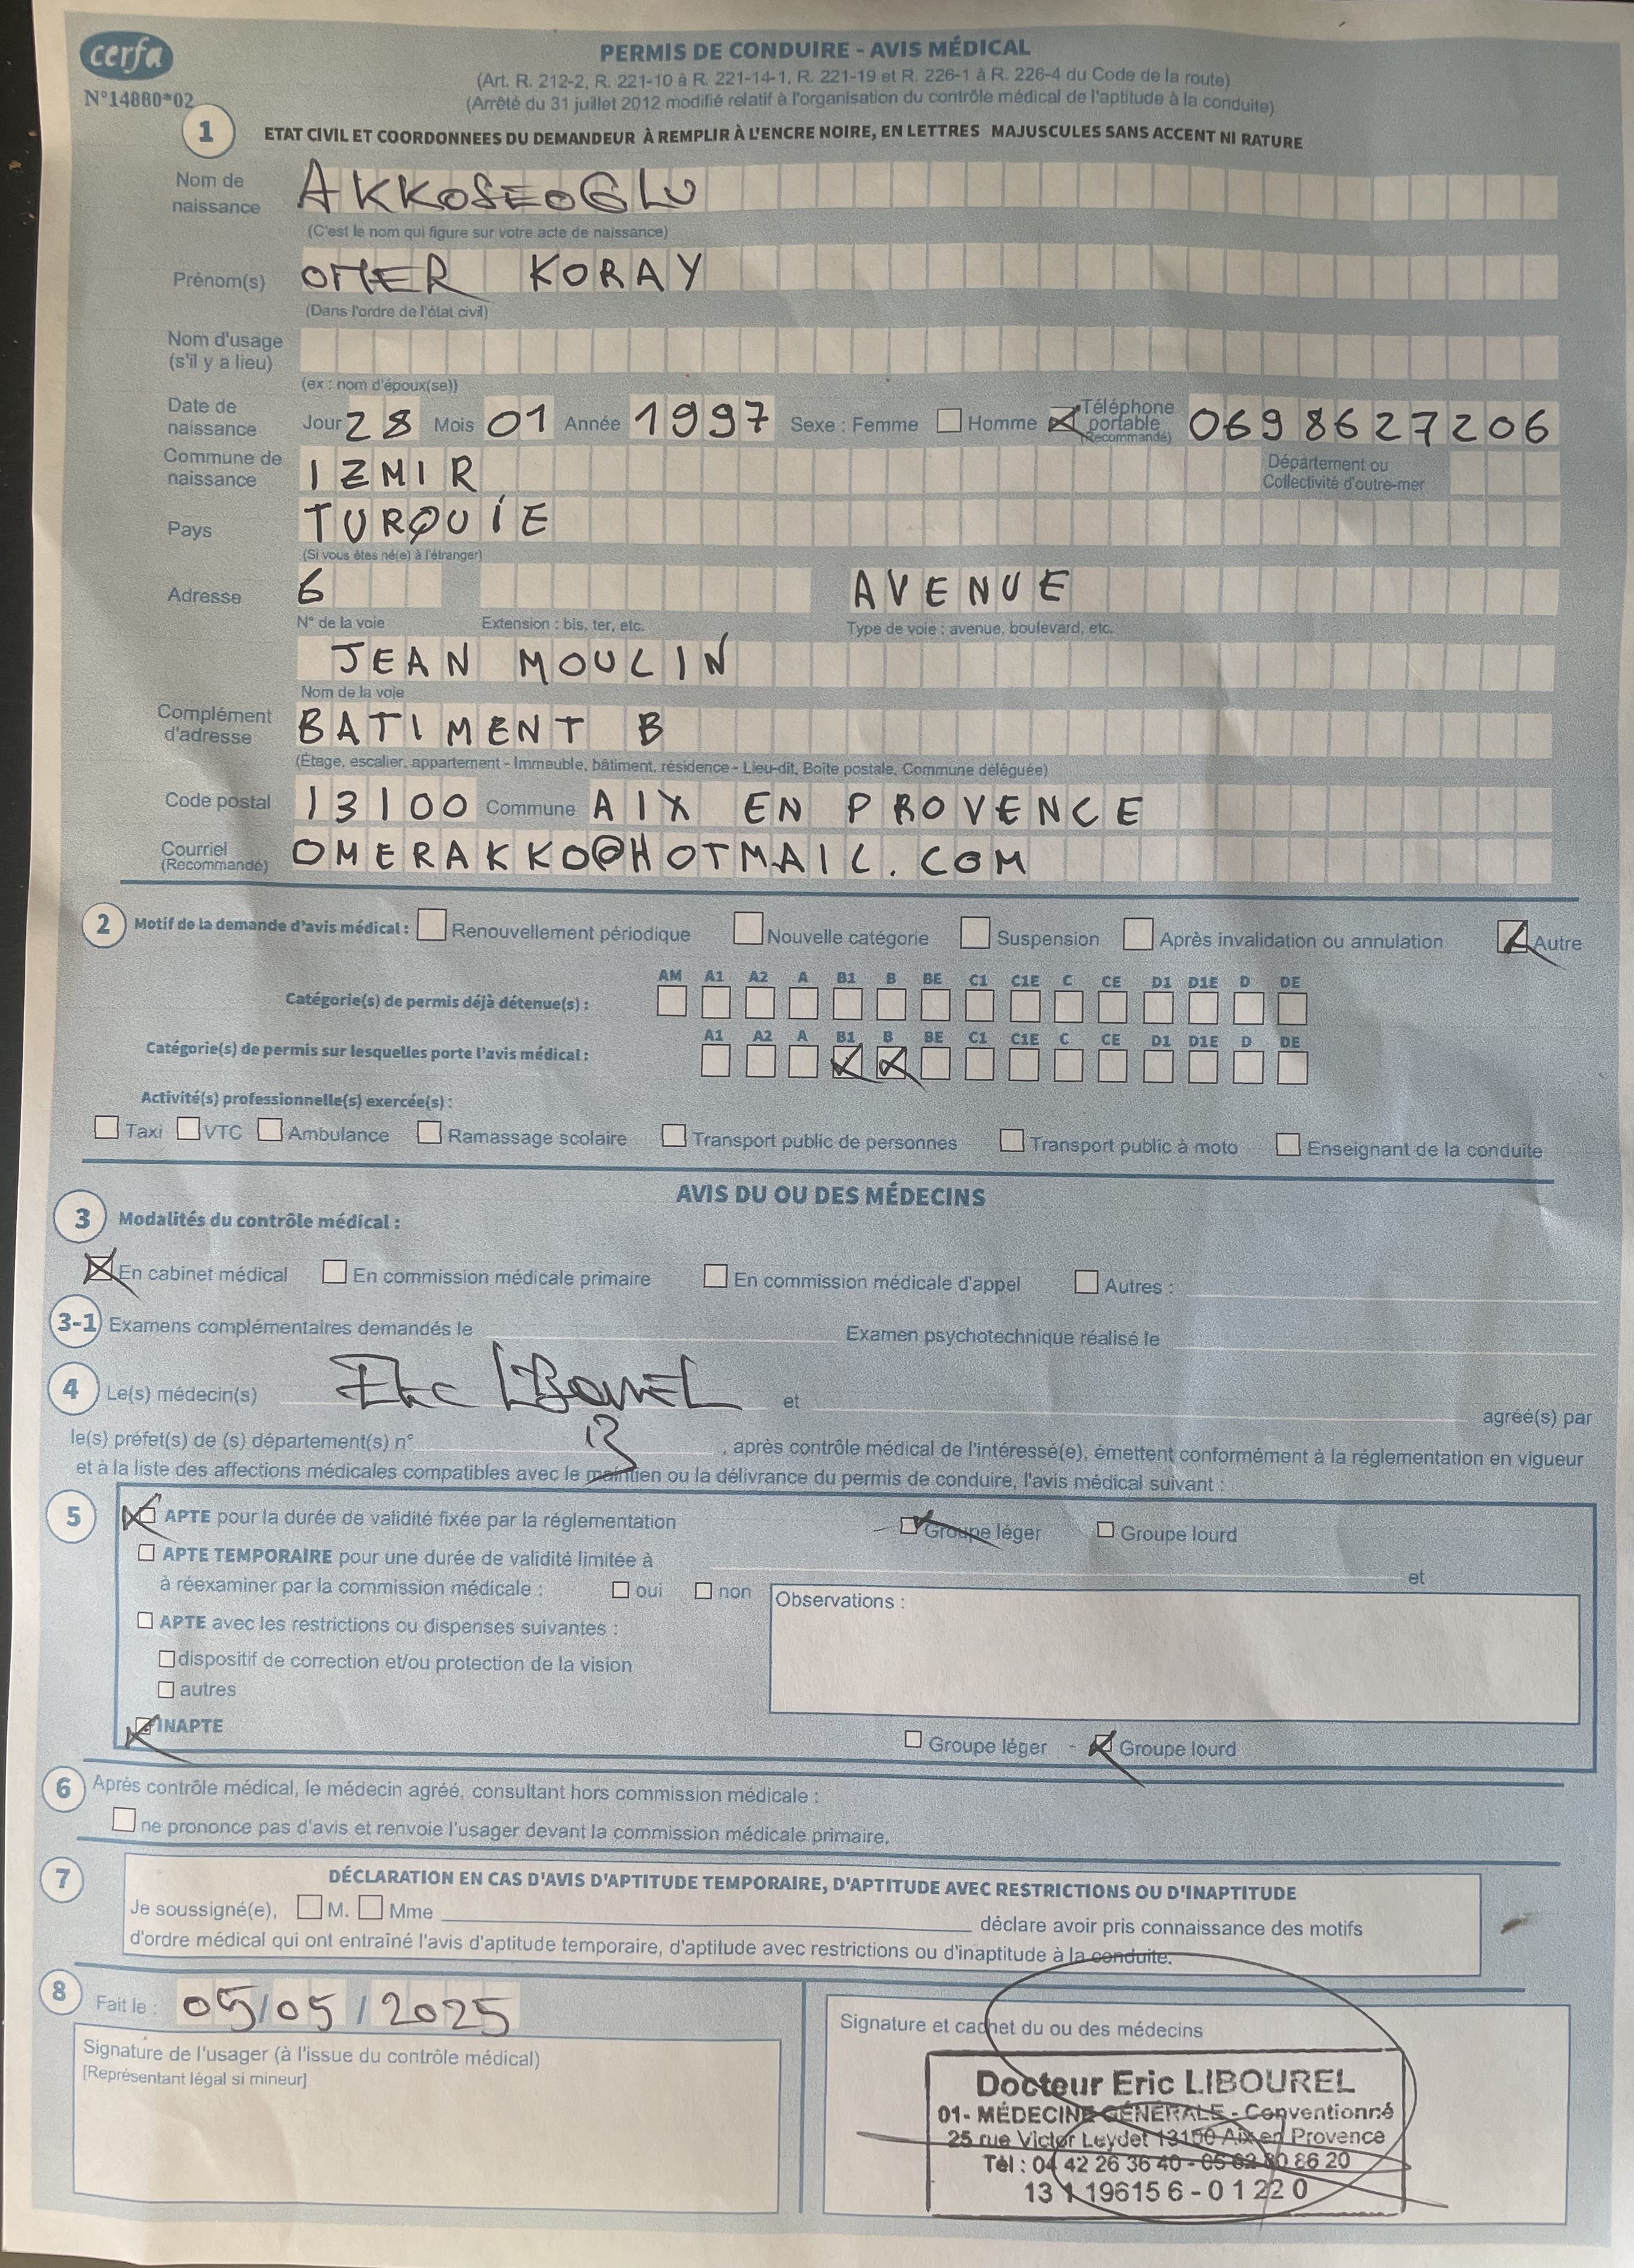 cerfa
N°14880*02
PERMIS DE CONDUIRE - AVIS MÉDICAL
(Art. R. 212-2, R. 221-10 à R. 221-14-1, R. 221-19 et R. 226-1 à R. 226-4 du Code de la route)
(Arrêté du 31 juillet 2012 modifié relatif à l'organisation du contrôle médical de l'aptitude à la conduite)
1 ETAT CIVIL ET COORDONNEES DU DEMANDEUR À REMPLIR À L'ENCRE NOIRE, EN LETTRES MAJUSCULES SANS ACCENT NI RATURE
Nom de naissance AKKOSEOGLU
(C'est le nom qui figure sur votre acte de naissance)
Prénom(s) OMER KORAY
(Dans l'ordre de l'état civil)
Nom d'usage (s'il y a lieu)
(ex : nom d'époux(se))
Date de naissance Jour 28 Mois 01 Année 1997 Sexe : Femme Homme Téléphone portable (Recommandé) 0698627206
Commune de naissance IZMIR Département ou Collectivité d'outre-mer
Pays TURQUIE
(Si vous êtes né(e) à l'étranger)
Adresse 6 AVENUE
N° de la voie Extension : bis, ter, etc. Type de voie : avenue, boulevard, etc.
JEAN MOULIN
Nom de la voie
Complément d'adresse BATIMENT B
(Étage, escalier, appartement - Immeuble, bâtiment, résidence - Lieu-dit, Boîte postale, Commune déléguée)
Code postal 13100 Commune AIX EN PROVENCE
Courriel (Recommandé) OMERAKKO@HOTMAIL.COM
2 Motif de la demande d'avis médical : Renouvellement périodique Nouvelle catégorie Suspension Après invalidation ou annulation Autre
AM A1 A2 A B1 B BE C1 C1E C CE D1 D1E D DE
Catégorie(s) de permis déjà détenue(s) :
A1 A2 A B1 B BE C1 C1E C CE D1 D1E D DE
Catégorie(s) de permis sur lesquelles porte l'avis médical :
Activité(s) professionnelle(s) exercée(s) :
Taxi VTC Ambulance Ramassage scolaire Transport public de personnes Transport public à moto Enseignant de la conduite
AVIS DU OU DES MÉDECINS
3 Modalités du contrôle médical :
En cabinet médical En commission médicale primaire En commission médicale d'appel Autres :
3-1 Examens complémentaires demandés le Examen psychotechnique réalisé le
4 Le(s) médecin(s) Eric LIBOUREL et agréé(s) par
le(s) préfet(s) de (s) département(s) n° 13 , après contrôle médical de l'intéressé(e), émettent conformément à la réglementation en vigueur
et à la liste des affections médicales compatibles avec le maintien ou la délivrance du permis de conduire, l'avis médical suivant :
5 APTE pour la durée de validité fixée par la réglementation Groupe léger Groupe lourd
APTE TEMPORAIRE pour une durée de validité limitée à et
à réexaminer par la commission médicale : oui non
Observations :
APTE avec les restrictions ou dispenses suivantes :
dispositif de correction et/ou protection de la vision
autres
INAPTE Groupe léger Groupe lourd
6 Après contrôle médical, le médecin agréé, consultant hors commission médicale :
ne prononce pas d'avis et renvoie l'usager devant la commission médicale primaire.
7 DÉCLARATION EN CAS D'AVIS D'APTITUDE TEMPORAIRE, D'APTITUDE AVEC RESTRICTIONS OU D'INAPTITUDE
Je soussigné(e), M. Mme déclare avoir pris connaissance des motifs
d'ordre médical qui ont entraîné l'avis d'aptitude temporaire, d'aptitude avec restrictions ou d'inaptitude à la conduite.
8 Fait le : 05/05/2025
Signature de l'usager (à l'issue du contrôle médical)
[Représentant légal si mineur]
Signature et cachet du ou des médecins
Docteur Eric LIBOUREL
01- MÉDECINE GÉNÉRALE - Conventionné
25 rue Victor Leydet 13100 Aix en Provence
Tél : 04 42 26 36 40 - 06 62 80 86 20
13 1 19615 6 - 0 1 22 0